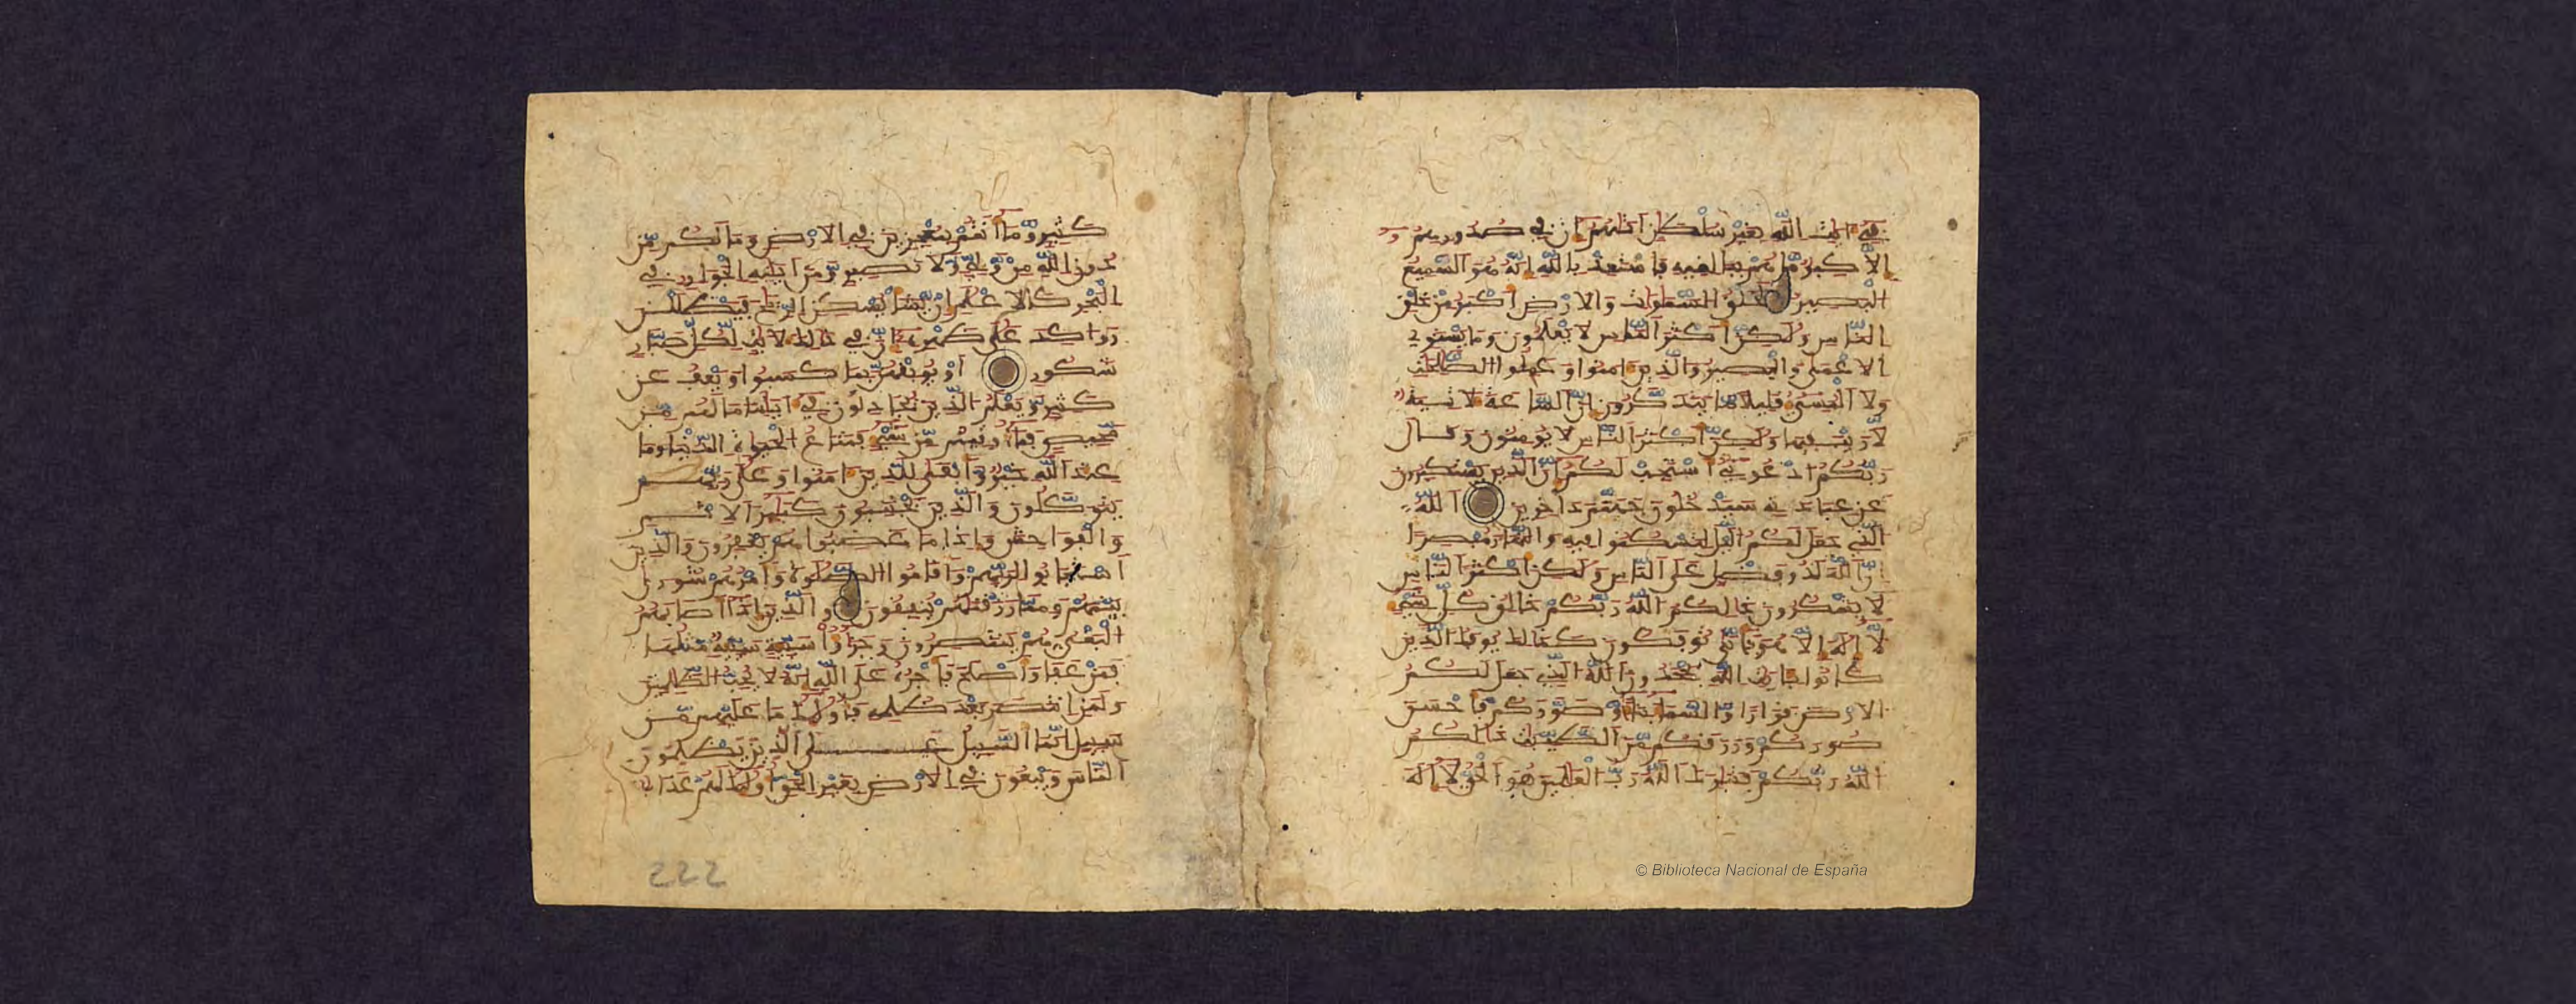 في ءايت الله بغير سلطن اتيهم ان في صدورهم
الا كبر ما هم ببلغيه فاستعذ بالله انه هو السميع
البصير لخلق السموت والارض اكبر من خلق
الناس ولكن اكثر الناس لا يعلمون وما يستوي
الاعمى والبصير والذين ءامنوا وعملوا الصلحت
ولا المسيء قليلا ما يتذكرون ان الساعة لاتية
لا ريب فيها ولكن اكثر الناس لا يومنون وقال
ربكم ادعوني استجب لكم ان الذين يستكبرون
عن عبادتي سيدخلون جهنم داخرين الله
الذي جعل لكم اليل لتسكنوا فيه والنهار مبصرا
ان الله لذو فضل على الناس ولكن اكثر الناس
لا يشكرون ذلكم الله ربكم خلق كل شيء
لا اله الا هو فانى توفكون كذلك يوفك الذين
كانوا بايت الله يجحدون الله الذي جعل لكم
الارض قرارا والسماء بناء وصوركم فاحسن
صوركم ورزقكم من الطيبت ذلكم
الله ربكم فتبرك الله رب العلمين هو الحي لا اله
كثير وما انتم بمعجزين في الارض وما لكم من
دون الله من ولي ولا نصير ومن ايته الجوار في
البحر كالاعلم ان يشا يسكن الريح فيظللن
رواكد على ظهره ان في ذلك لايت لكل صبار
شكور او يوبقهن بما كسبوا ويعف عن
كثير ويعلم الذين يجادلون في ايتنا ما لهم من
محيص فما اوتيتم من شيء فمتاع الحيوة الدنيا وما
عند الله خير وابقى للذين ءامنوا وعلى ربهم
يتوكلون والذين يجتنبون كبير الاثم
والفواحش واذا ما غضبوا هم يغفرون والذين
استجابوا لربهم واقاموا الصلوة وامرهم شورى
بينهم ومما رزقنهم ينفقون والذين اذا اصابهم
البغي هم ينتصرون وجزوا سيية سيية مثلها
فمن عفا واصلح فاجره على الله انه لا يحب الظلمين
ولمن انتصر بعد ظلمه فاوليك ما عليهم من
سبيل انما السبيل على الذين يظلمون
الناس ويبغون في الارض بغير الحق اوليك لهم عذاب
222
© Biblioteca Nacional de España